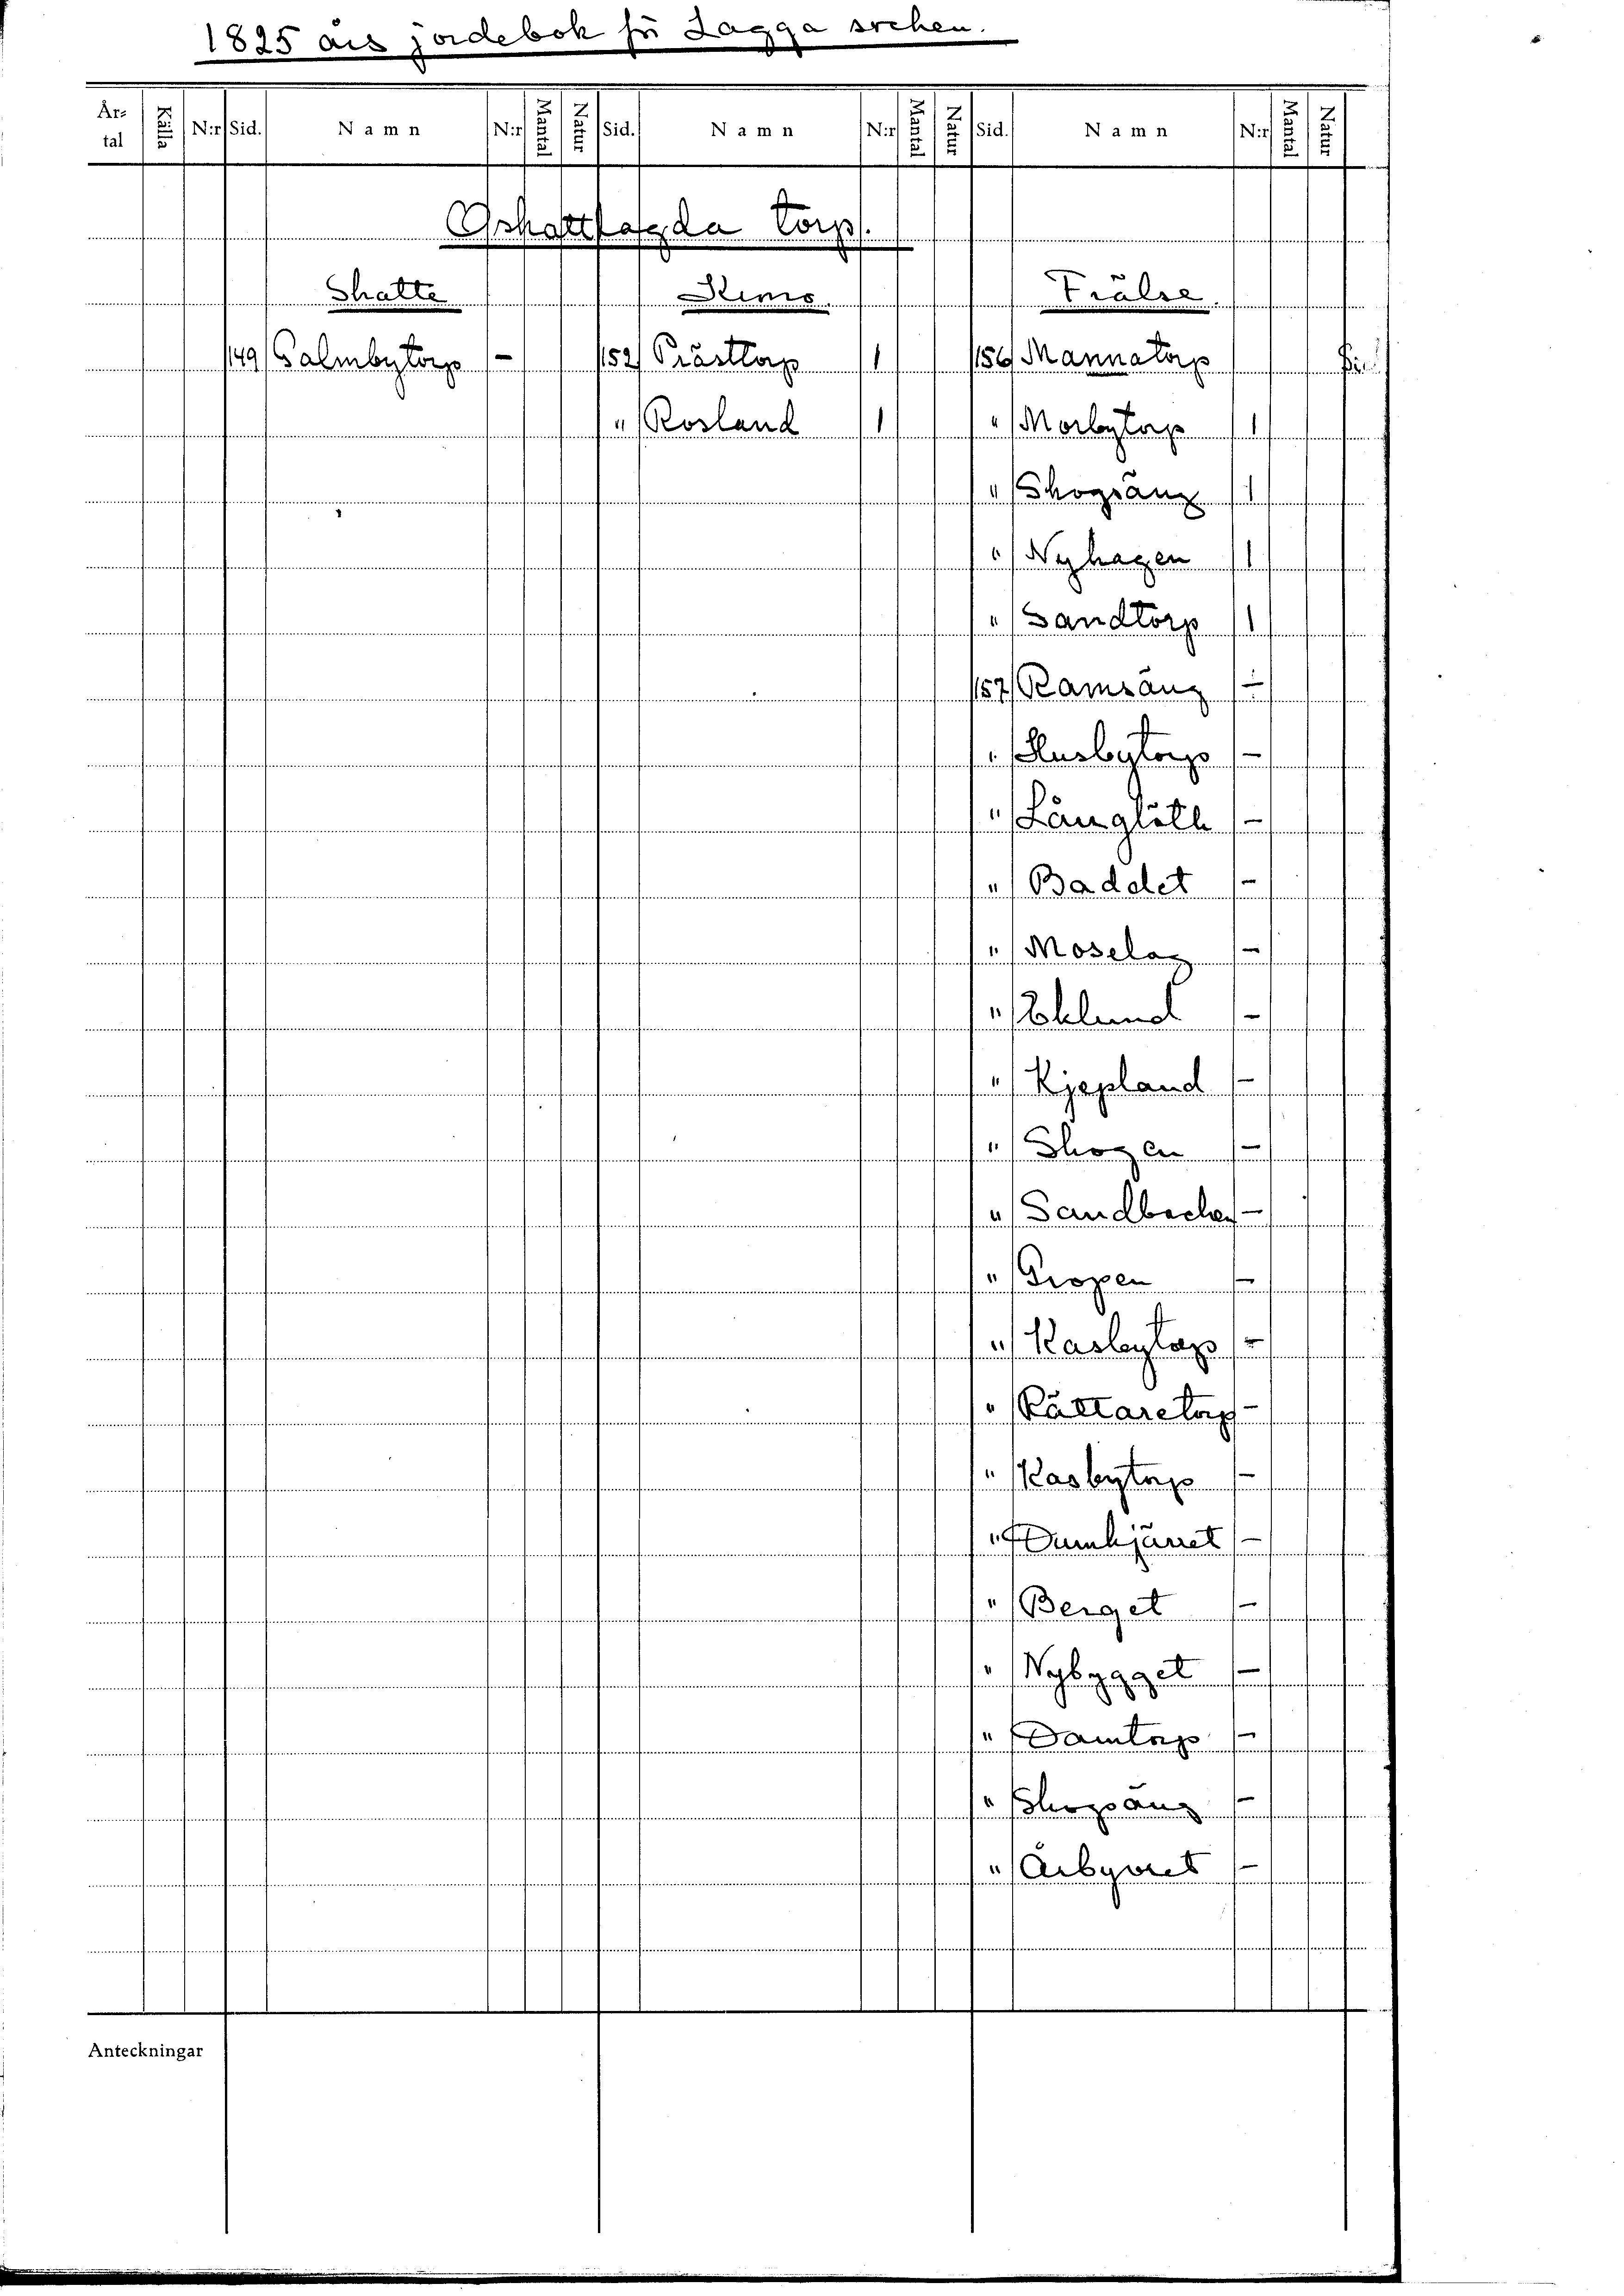 1825 års jordebok för Lagga socken.
År-tal Källa N:r Sid. Namn N:r Mantal Natur Sid. Namn N:r Mantal Natur Sid. Namn N:r Mantal Natur
Oskattlagda torp.
Skatte Krono. Frälse.
149 Salmbytorp - 152 Prästtorp 1 156 Mannatorp
" Rosland 1 " Morbytorp 1
" Skogsäng 1
" Nyhagen 1
" Sandtorp 1
157 Ramsäng -
" Husbytorp -
" Långlöth -
" Baddet -
" Moselag -
" Eklund -
" Kjepland -
" Skogen -
" Sandbacken -
" Gropen -
" Kasbytorp -
" Rättaretorp -
" Kasbytorp -
" Dumkjärret -
" Berget -
" Nybygget -
" Damtorp -
" Skogsäng -
" Årbyvret -
Anteckningar